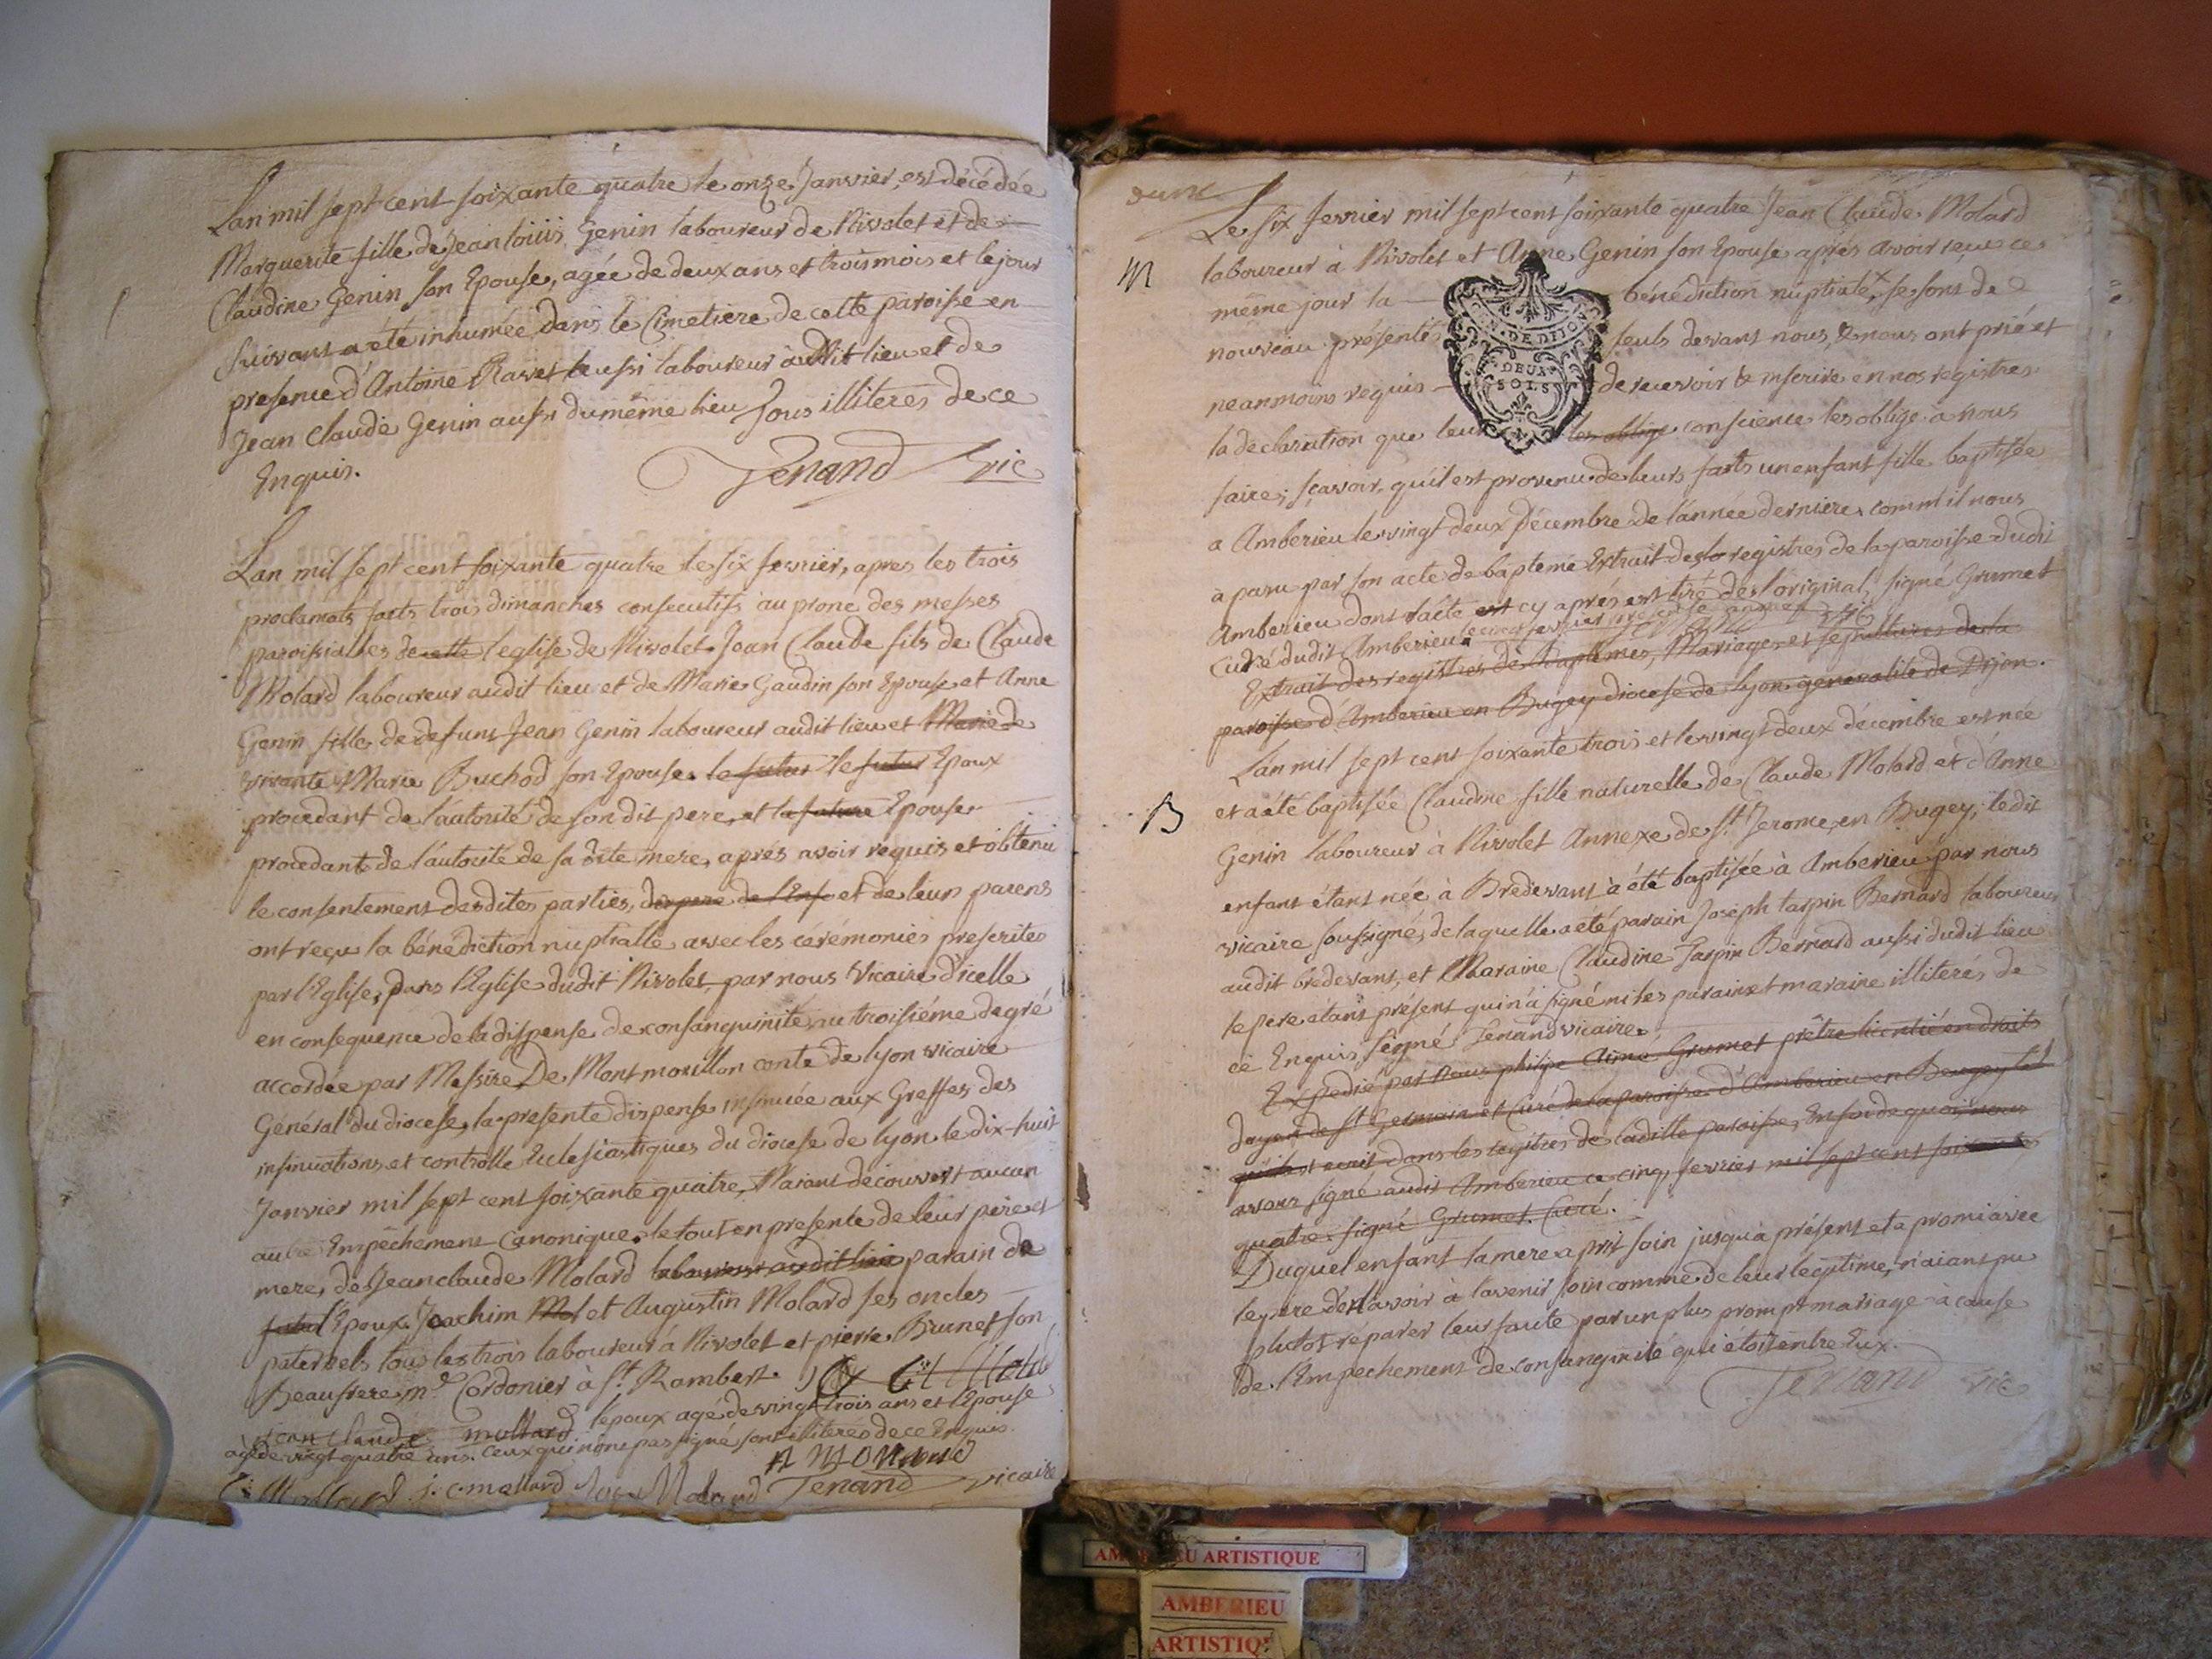 Lan mil sept cent soixante quatre le onze Janvier, est décédée
Marguerite fille de Jean loüis Genin laboureur de Nivolet et de
Claudine Genin son Epouse, agée de deux ans et trois mois et le jour
suivant a été inhumée dans le Cimetiere de cette paroisse en
presence d'Antoine Ravet aussi laboureur audit lieu et de
Jean Claude Genin aussi du même lieu Tous illiteres de ce
Enquis.
Tenand vic
Lan mil sept cent soixante quatre le six fevrier, apres les trois
proclamats faits trois dimanches consecutifs au prone des messes
paroissialles de cette l'eglise de Nivolet Jean Claude fils de Claude
Molard laboureur audit lieu et de Marie Gaudin son Epouse et Anne
Genin fille de defunt Jean Genin laboureur audit lieu et Marie de
vivante Marie Buchod son Epouse. le futur le futur Epoux
procedant de l'autorité de son dit pere, et la future Epouse
procedante de l'autorité de sa dite mere, aprés avoir requis et obtenu
le consentement desdites parties, et de leurs parens
ont reçu la bénédiction nuptialle avec les cérémonies prescrites
par l'Eglise, dans l'Eglise dudit Nivolet, par nous Vicaire d'icelle
en consequence de la dispense de consanguinité au troisiéme degré
accordée par Messire De Montmorillon conte de lyon vicaire
Général du diocese, la presente dispense insinuée aux Greffes des
insinuations et controlle Eclesiastiques du diocese de lyon le dix-huit
Janvier mil sept cent soixante quatre, N'aiant découvert aucun
autre Empêchement Canonique. le tout en presence de leur pere et
mere, de Jean claude Molard laboureur audit lieu parain de
futur l'Epoux. Joachim Mol et Augustin Molard ses oncles
paternels tous les trois laboureurs à Nivolet et pierre Brunet son
Beaufrere, md Cordonier à St. Rambert.
jean claude mollard l'epoux agé de vingt trois ans et l'Epouse
agée de vingt quatre ans. ceux qui n'ont pas signé sont illiterés de ce Enquis.
A MOLLARD
j. c. mollard Tenand vicaire
M
Le six fevrier mil sept cent soixante quatre Jean Claude Molard
laboureur à Nivolet et Anne Genin son Epouse aprés avoir reçu ce
même jour la bénédiction nuptiale, se sont de
nouveau présentés seuls devant nous, & nous ont prié et
neanmoins requis de recevoir & inscrire en nos registres
la declaration que leur les oblige conscience les oblige a nous
faire; sçavoir, qu'il est provenu de leurs faits un enfant fille baptisée
a Amberieu le vingt deux Décembre de l'année derniere comm'il nous
a paru par son acte de baptême Extrait des registres de la paroisse dudit
Amberieu dont l'acte est cy aprés est tiré de l'original, signé Grumet
Curé dudit Amberieu
Extrait des registres de Baptêmes, Mariages et sepultures de la
paroisse d'Amberieu en Bugey diocese de lyon generalité de Dijon.
L'an mil sept cent soixante trois et le vingt deux décembre est née
B
et a été baptisée Claudine fille naturelle de Claude Molard et d'Anne
Genin laboureur à Nivolet Annexe de St. Jerome, en Bugey; ledit
enfant étant née à Bredevant a été baptisée à Amberieu par nous
vicaire soussigné, de laquelle a eté parain Joseph tarpin Bernard laboureur
audit bredevant, et Maraine Claudine Tarpin Bernard aussi dudit lieu
le pere étant présent qui n'a signé ni les parain et maraine illiterés de
ce Enquis, signé Tenand vicaire.
Expedié par nous philipe Aimé Grumet prêtre licentié en droits
doyen de St Germain et Curé de la paroisse d'Amberieu en Beugey tel
qu'il est ecrit dans les registres de ladille paroisse, En foi de quoi nous
avons signé audit Amberieu ce cinq fevrier mil sept cent soixante
quatre. signé Grumet Curé.
Duquel enfant la mere a prit soin jusqu'a présent et a promi avec
le pere d'en avoir à l'avenir soin comme de leur legitime, n'aiant pu
plutot réparer leur faute par un plus prompt mariage à cause
de l'Empechement de consanguinité qui étoit entre Eux.
Tenand vic
GEN. DE DIJON
DEUX
SOLS
AMBERIEU ARTISTIQUE
AMBERIEU
ARTISTIQUE